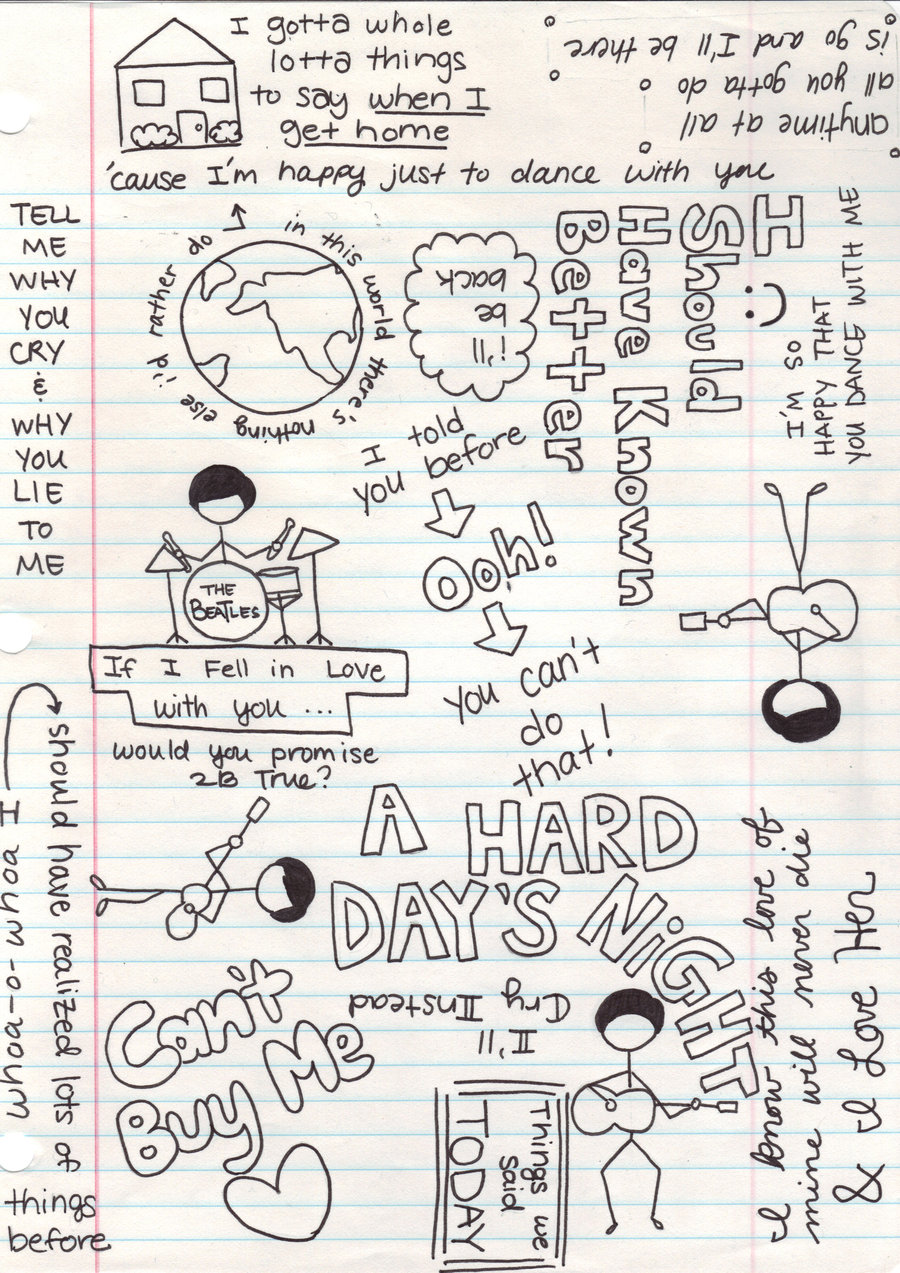 I gotta whole
lotta things
to say when I
get home
anytime at all
all you gotta do
is go and I'll be there
'cause I'm happy just to dance with you
TELL
ME
WHY
YOU
CRY
&
WHY
YOU
LIE
TO
ME
in this world there's nothing else i'd rather do
i'll
be
back
I
Should
Have Known
Better
I'M SO
HAPPY THAT
YOU DANCE WITH ME
I told
you before
Ooh!
you can't
do
that!
THE
BEATLES
If I Fell in Love
with you ...
would you promise
2B True?
whoa-o-whoa I
should have realized lots of
things
before
A HARD
DAY'S NiGHT
Can't
Buy Me
I'll
Cry Instead
Things we
Said
TODAY
I know this love of
mine will never die
& I Love Her